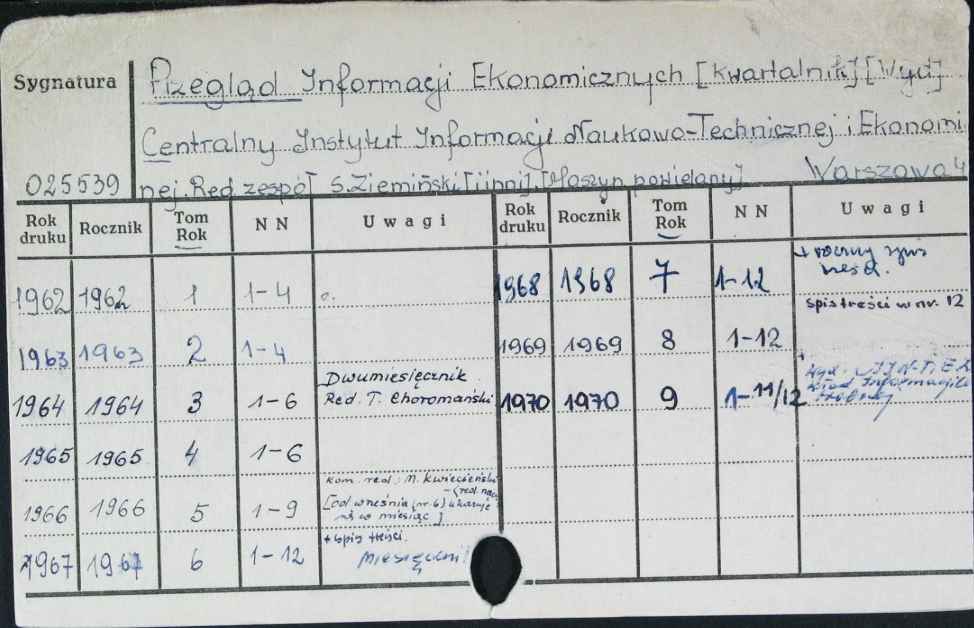 Sygnatura Przegląd Informacji Ekonomicznych [Kwartalnik] [Wyd]
Centralny Instytut Informacji Naukowo-Technicznej i Ekonomi
025539 nej. Red zespół S. Ziemiński [i inni]. [Maszyn powielany] Warszawa
Rok druku Rocznik Tom Rok NN Uwagi Rok druku Rocznik Tom Rok NN Uwagi
1962 1962 1 1-4 1968 1968 7 1-12 + roczny spis
spis treści w nr. 12
1963 1963 2 1-4 1969 1969 8 1-12
1964 1964 3 1-6 Dwumiesięcznik Red. T. Choromański 1970 1970 9 1-11/12 Wyd. Informacji
1965 1965 4 1-6
1966 1966 5 1-9 kom. red.: M. Kwieciński (red. nacz
[od września (nr. 6) ukazuje
się w miesiąc]
1967 1967 6 1-12 + spis treści.
Miesięcznik